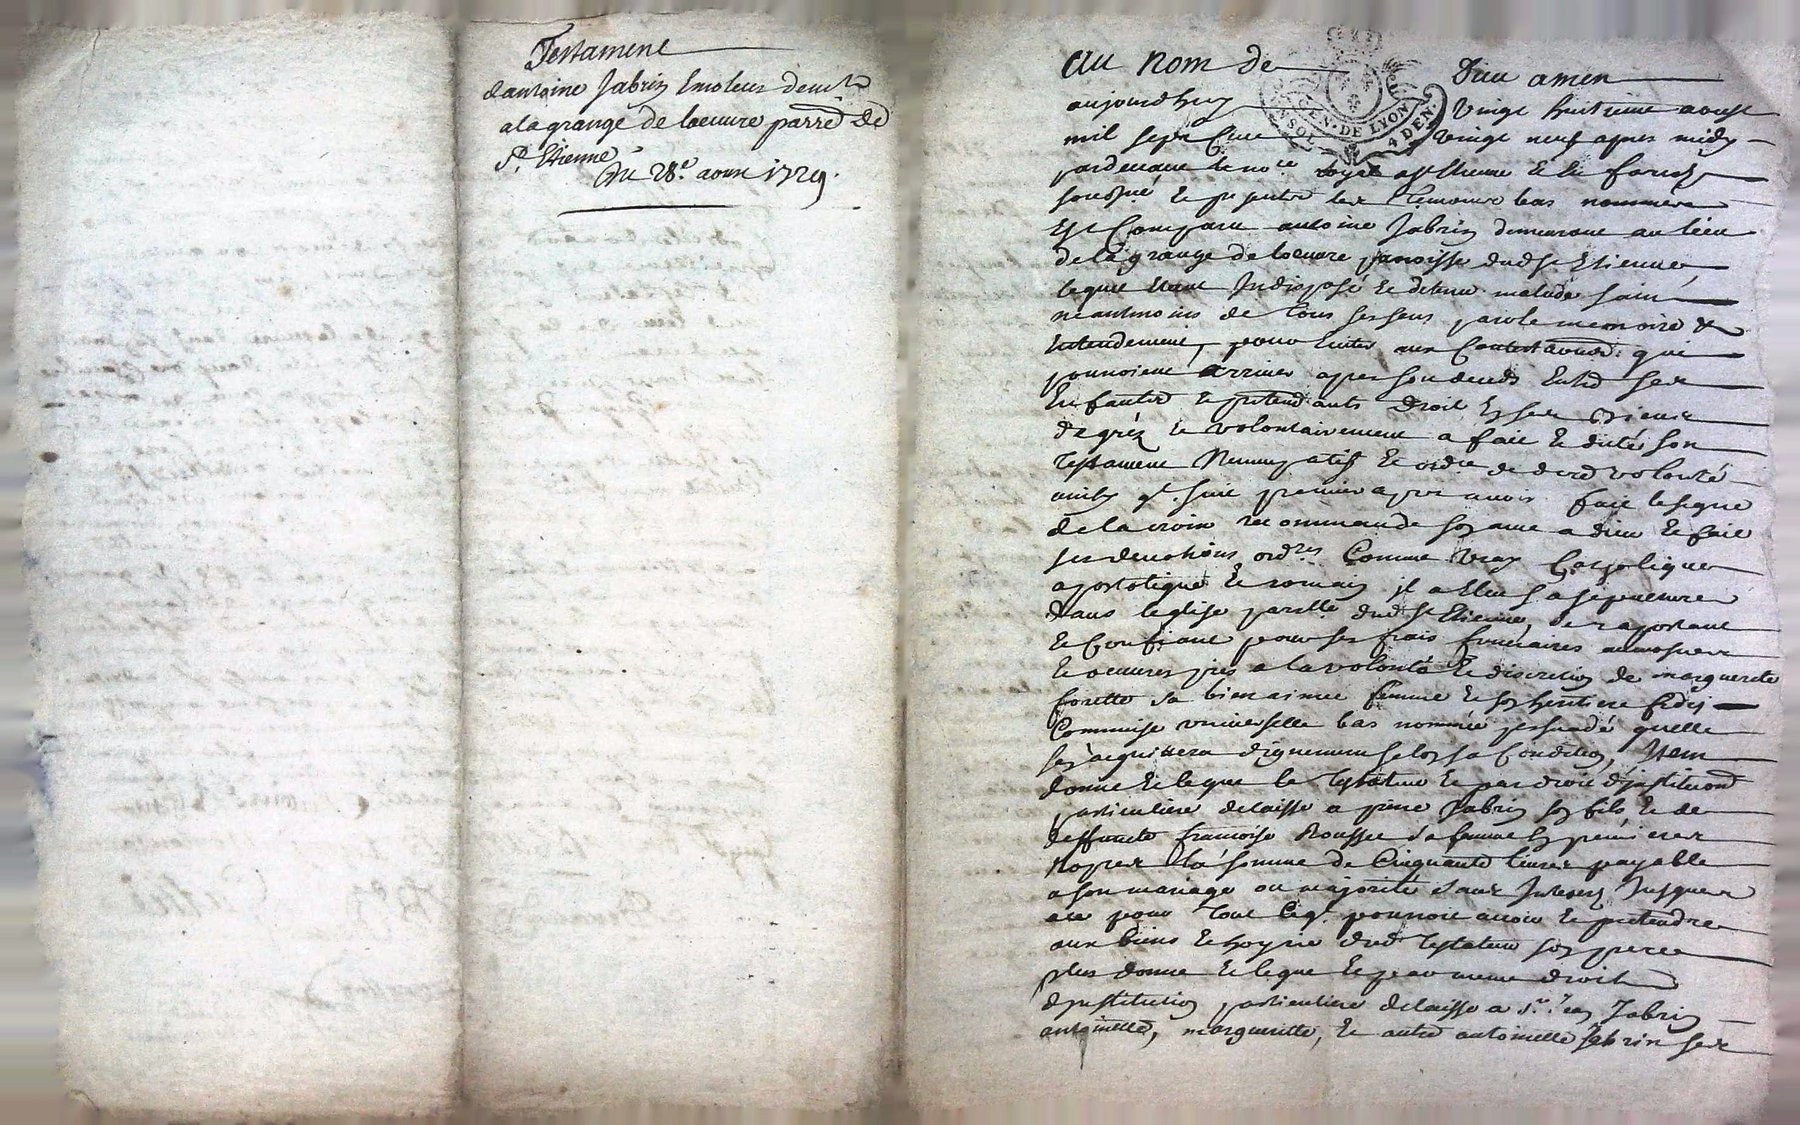 Testament
d'antoine Jabrin Emoleur demt
a la grange de loeuvre parre de
St. Etienne
Du 28e. aoust 1729.
Au nom de Dieu amen
GEN. DE LYON
4 DEN.
aujourdhuy vingt huitieme aoust
mil sept Cent vingt neuf apres midy
pardevant le nore royal a st Etienne
sousné et presents les temoins bas nommés
Est Comparu antoine Jabrin demeurant au lieu
de la grange de loeuvre paroisse dud st Etienne
lequel Etant Indisposé et detenu malade sain
neantmoins de tous ses sens parole memoire &
Entendement, pour Eviter aux Contestaons. qui
pourroient arriver apres son deceds Entre ses
Enfants et pretendants droit en ses biens
de gréz et volontairement a fait et dicté son
testament Nuncupatif et ordre de dere volonté
ainsy qt. suit premier apres avoir fait le signe
de la croix recommandé son ame a dieu et fait
ses devotions ordres Comme vray Catholique
apostolique et romain il a Eleu sa sepulture
dans leglise parelle dud st Etienne, se raportant
et Confiant pour ses frais funeraires aumosnes
et oeuvres pies a la volonté et discretion de marguerite
forette sa bien aimée femme et son heritiere fidei
Commise universelle bas nommée persuadé quelle
sen aquittera dignement selon sa Condition, Item
donne et legue le testateur et par droit dinstitution
particuliere delaisse a pierre Jabrin son fils et de
deffuncte francoise Rousset sa femme en premieres
Nopces la somme de Cinquante livres payable
a son mariage ou majorité sans Interests Jusques
ala pour tout Ceqt. pourroit avoir et pretendre
aux biens et hoyrie dud testateur son pere
plus donne et legue et par meme droit
dinstitution particuliere delaisse a Jabrin
antoinette, marguerite, et autre antoinette Jabrin ses